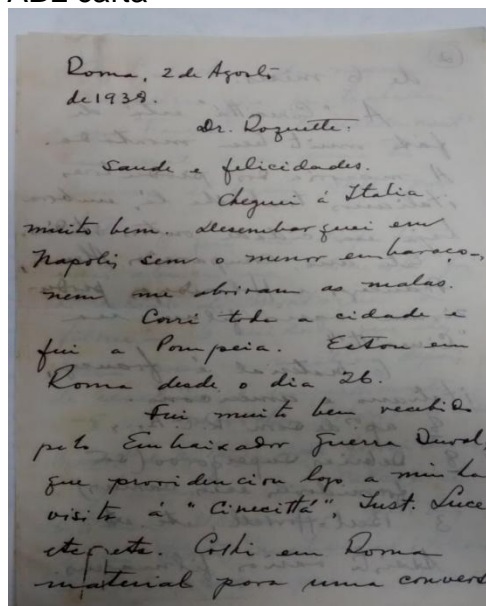 ABL carta
Roma, 2 de Agosto
de 1938.
Dr. Roquette.
Saude e felicidades.
Cheguei á Italia
muito bem. Desembarquei em
Napolis sem o menor embaraço,
nem me abriram as malas.
Corri toda a cidade e
fui a Pompeia. Estou em
Roma desde o dia 26.
Fui muito bem recebido
pelo Embaixador Guerra Duval,
que providenciou logo a minha
visita á "Cinecittá", Inst. Luce
etc, etc. Colhi em Roma
material para uma convers